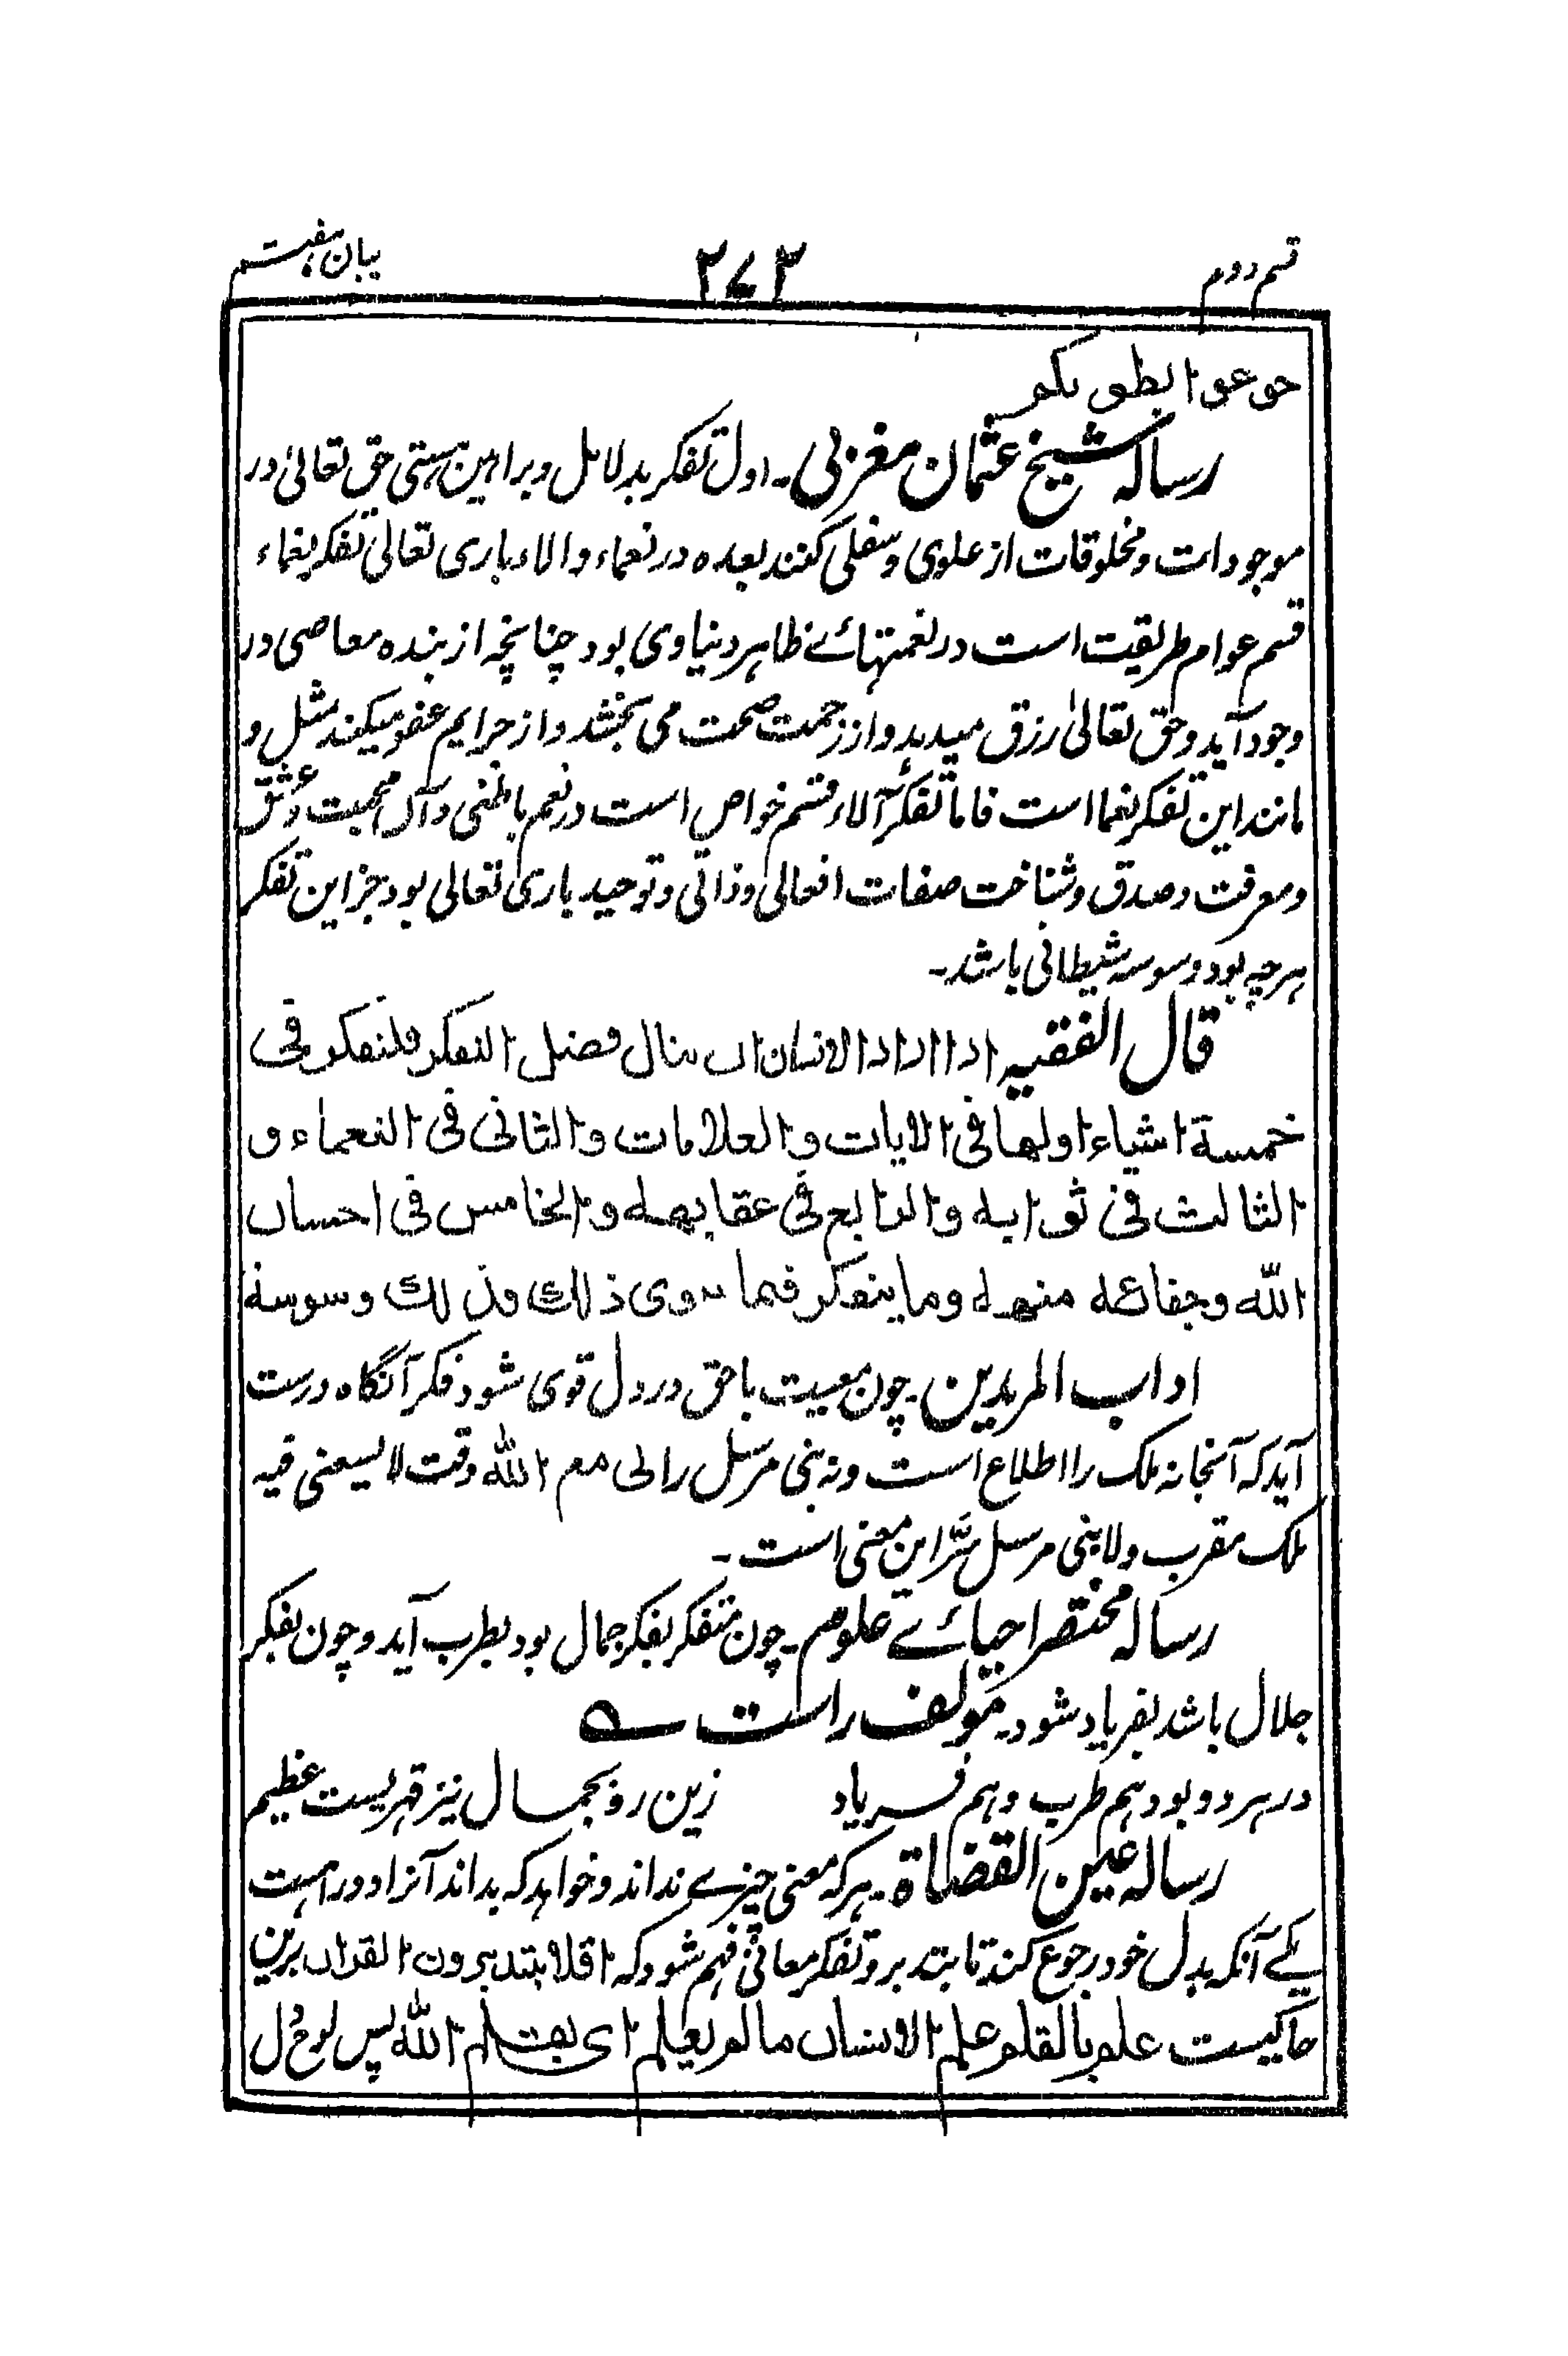 قسم دوم ۲۷۳ بیان هفتم
جوعوا بطونكم
رسالہ شیخ عثمان مغربی۔ اول تفکر بدلائل و براہین ہستی حق تعالیٰ در
موجودات و مخلوقات از علوی و سفلی کنند بعدہ در نعماء والاء باری تعالیٰ تفکر نعماء
قسم عوام طریقت است در نعمتہائے ظاہر دنیاوی بود چنانچہ از بندہ معاصی در
وجود آید و حق تعالیٰ رزق میدہد و از زحمت صحت می بخشد و از جرایم عفو میکند مثل و
مانند این تفکر نعما است فاما تفکر آلاء قسم خواص است در نعم باطنی و آں محبت و عشق
و معرفت و صدق و شناخت صفات افعالی و ذاتی و توحید باری تعالی بود جز این تفکر
ہرچہ بود وسوسہ شیطانی باشد۔
قال الفقیہ اذا اراد الانسان ان ینال فضل التفکر فلیتفکر فی
خمسة اشیاء اولھا فی الایات والعلامات والثانی فی النعماء و
الثالث فی ثوابہ والرابع فی عقابہ والخامس فی احسان
اللہ وجفائہ منہ وما یتفکر فیما سوی ذلك فذلك وسوسة
اداب المریدین۔ چون معیت باحق در دل قوی شود فکر آنگاہ درست
آید کہ آنجا نہ ملک را اطلاع است و نہ نبی مرسل را لی مع اللہ وقت لا یسعنی فیہ
ملک مقرب ولا نبی مرسل سرّ این معنی است۔
رسالہ مختصر احیائے علوم۔ چون متفکر بفکر جمال بود بطرب آید و چون بفکر
جلال باشد بفریاد شود۔ مؤلف راست ؎
در ہر دو بود ہم طرب و ہم فریاد زین رو بجمال نیز قہریست عظیم
رسالہ عین القضاة۔ ہر کہ معنی چیزے نداند و خواہد کہ بداند آنرا دو راہست
یکے آنکہ بدل خود رجوع کند تا بتدبر و تفکر معانی فہم شود کہ افلا یتدبرون القران برین
حاکیست علم بالقلم علم الانسان ما لم یعلم ای بقلم اللہ پس لوح دل